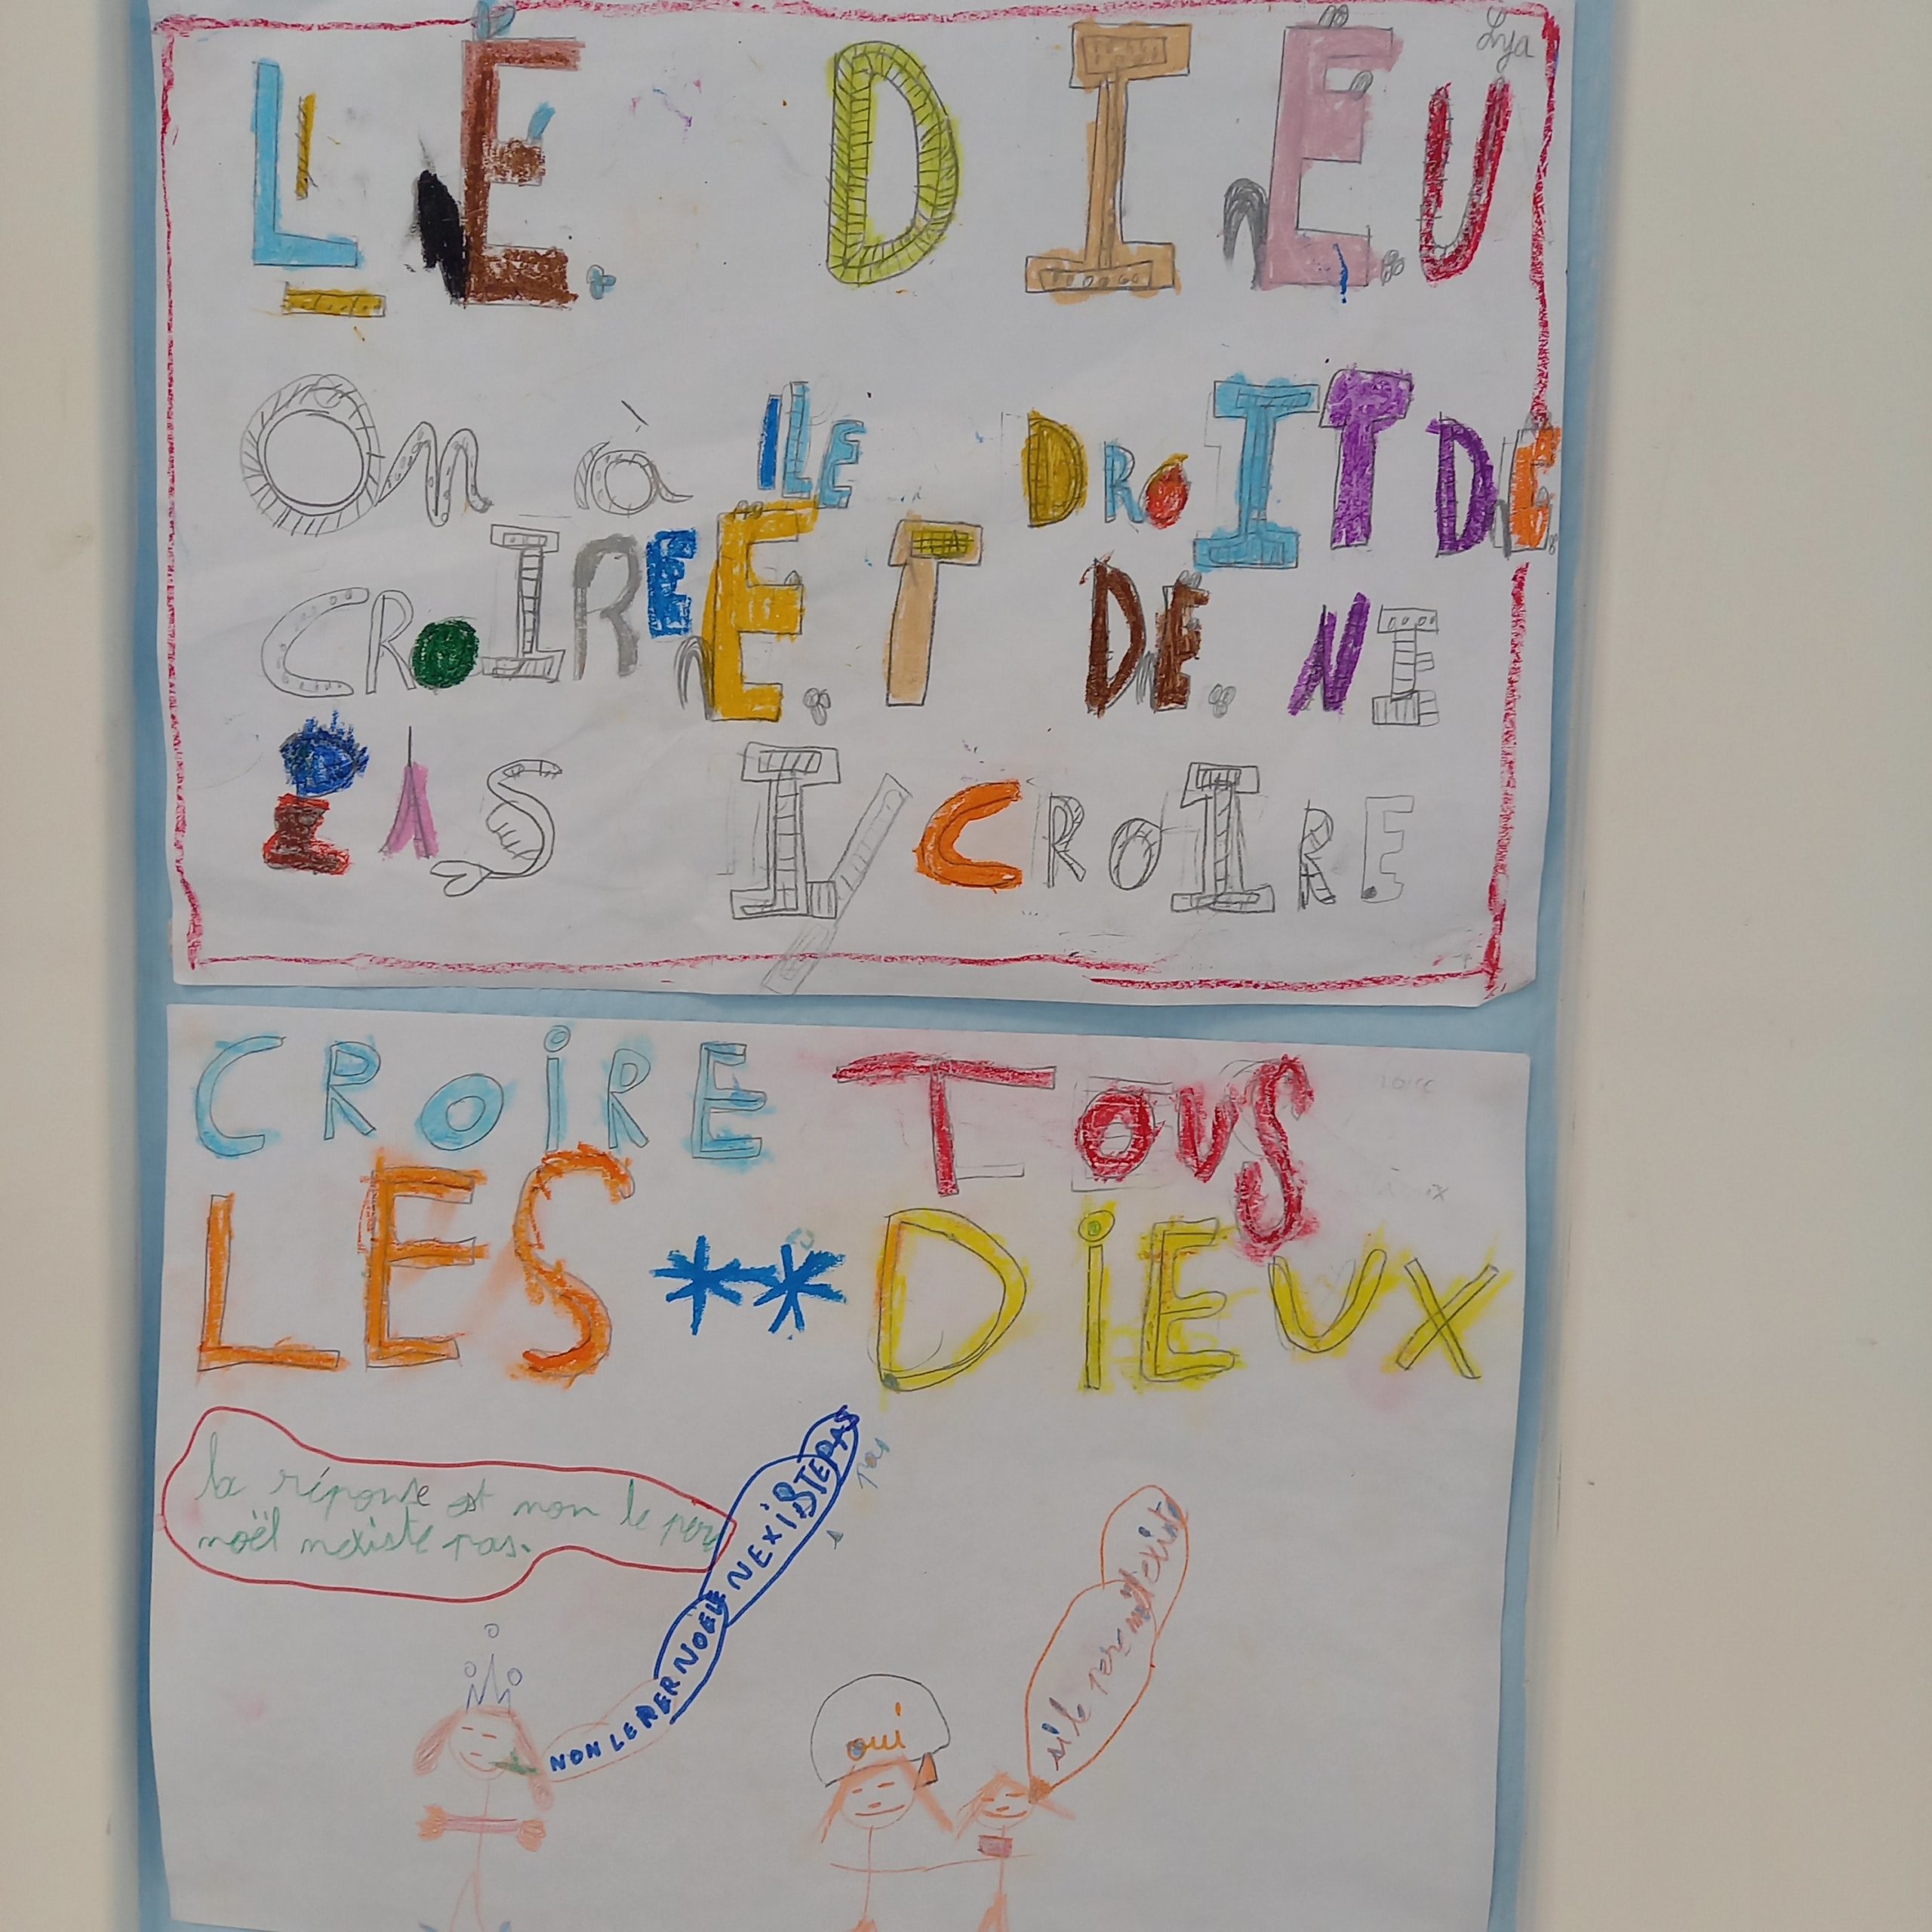 Lya
LE DIEU
On à LE DROIT DE
CROIRE ET DE NE
PAS Y CROIRE
CROIRE TOUS
LES ** DIEUX
la réponse est non le per
noël nexiste pas.
NON LE PER NOËLE NEXISTE PAS
pas
oui
si le per noël existe